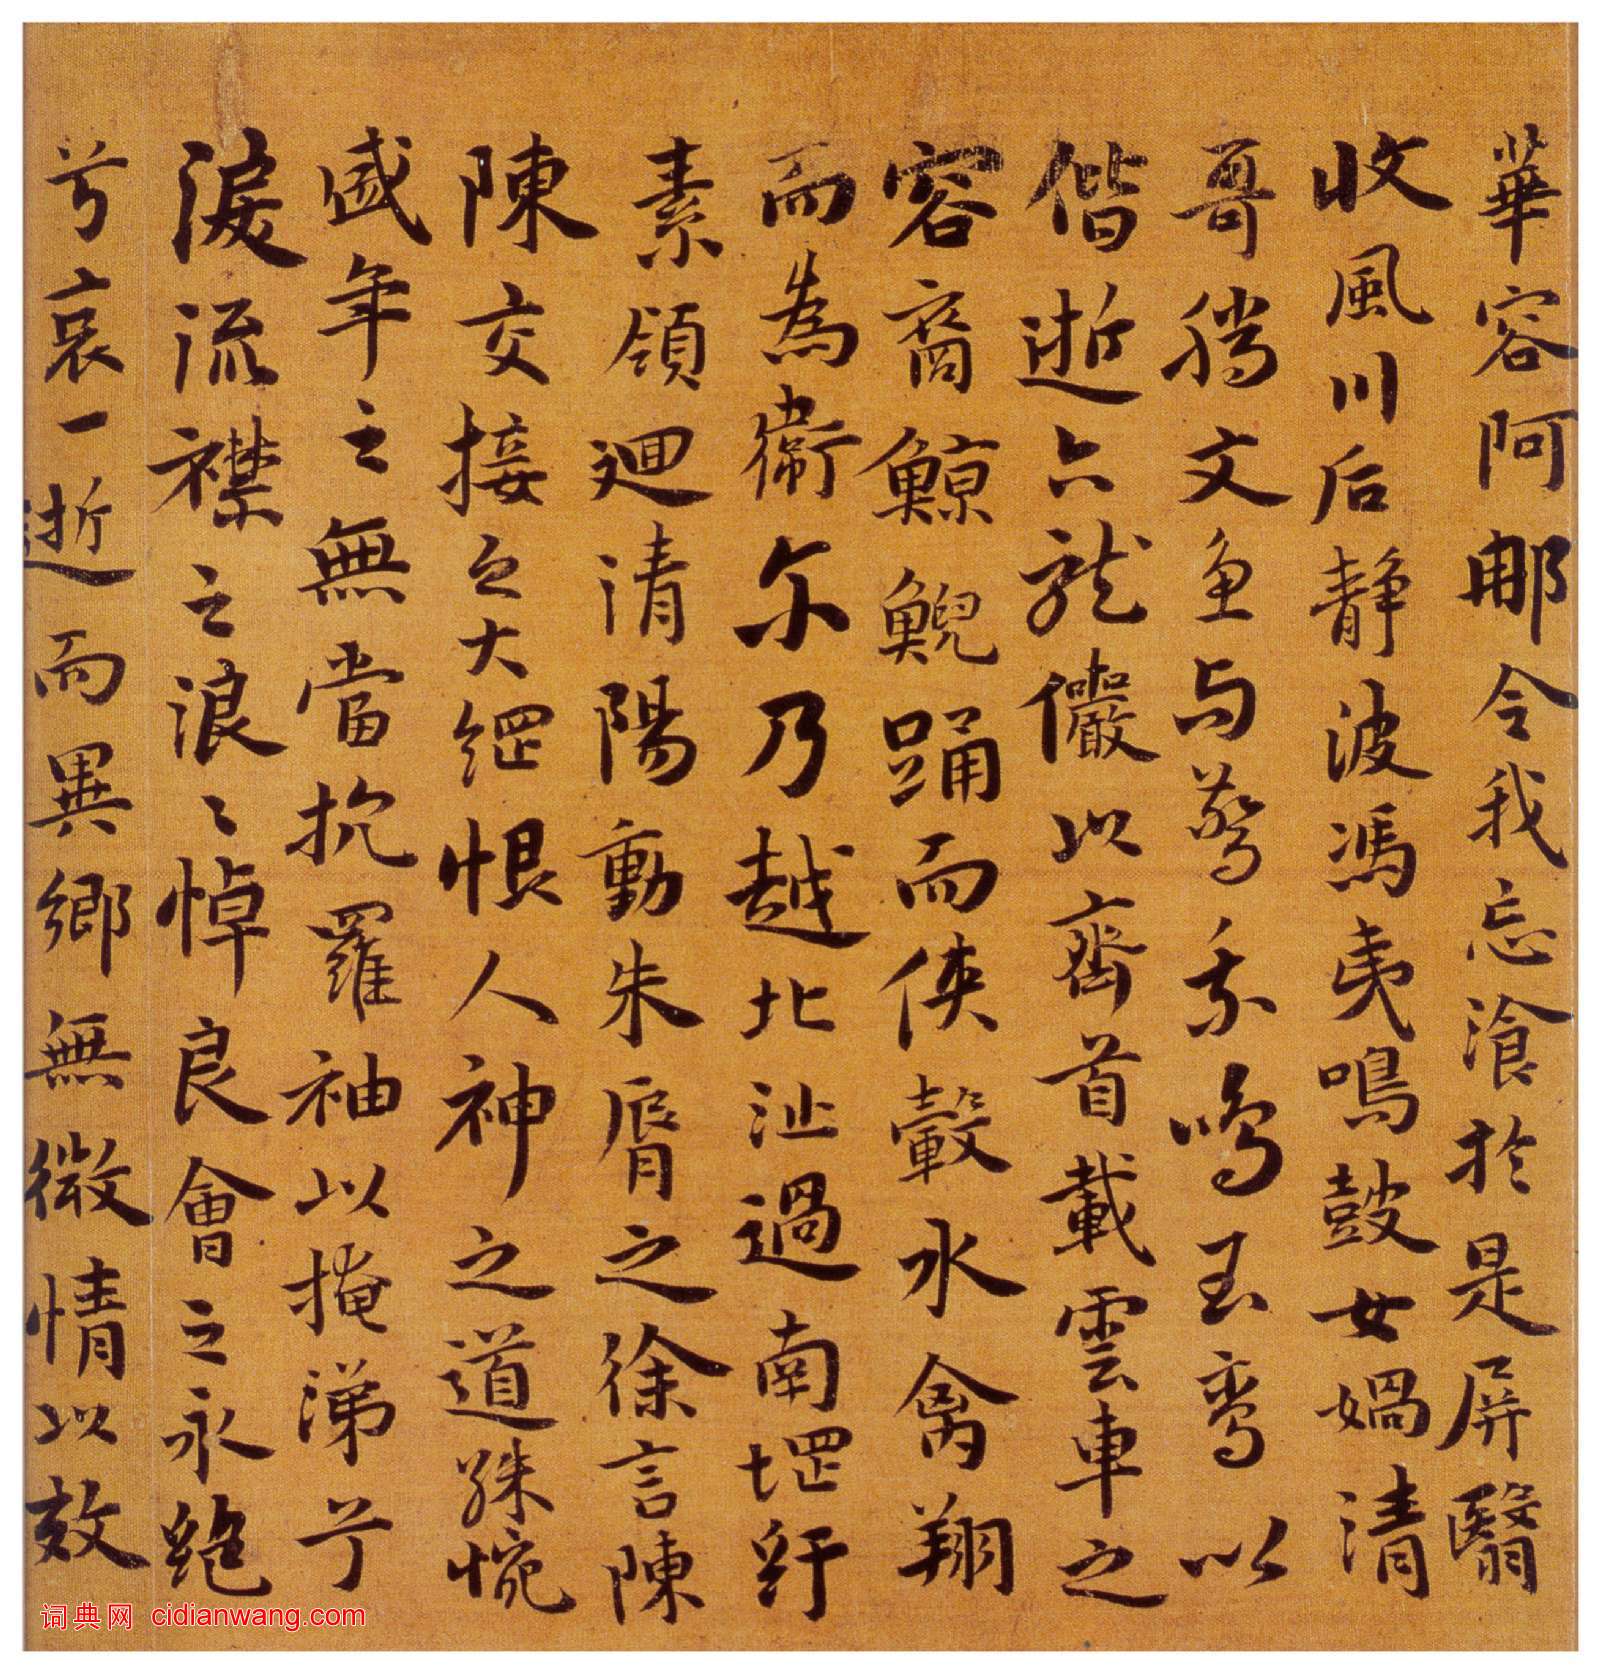 華容阿那令我忘飡於是屏翳
收風川后静波馮夷鳴鼓女媧清
哥騰文魚与驚乖鳴玉鸞以
偕逝六龍儼以齊首載雲車之
容裔鯨鯢踊而俠轂水禽翔
而為衛尓乃越北沚過南堽紆
素領迴清陽動朱脣之徐言陳
陳交接之大綱恨人神之道殊惋
盛年之無當抗羅袖以掩涕兮
淚流襟之浪々悼良會之永絕
兮哀一逝而異鄉無微情以效
词典网 cidianwang.com